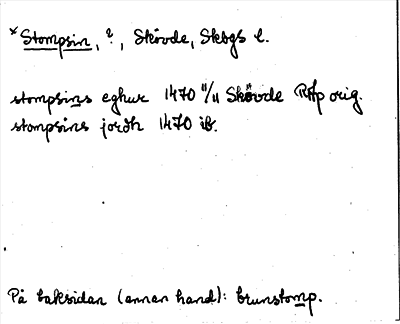 *Stompsin, ?, Skövde, Skbgs l.
stompsins eghur 1470 11/11 Skövde RAp orig.
stompsins jordh 1470 ib.
På baksidan (annan hand): brunstomp.